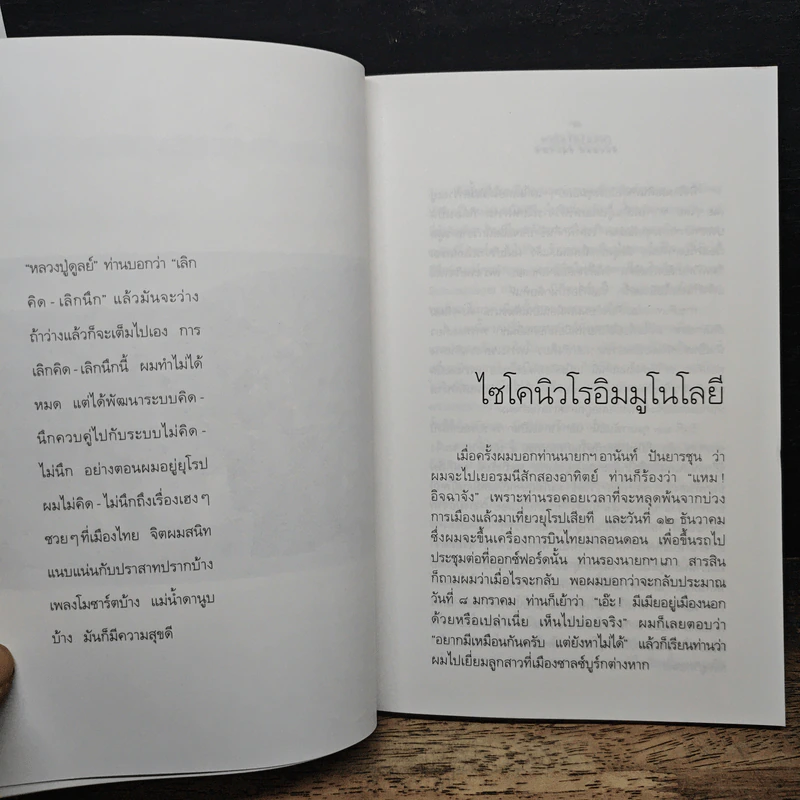 "หลวงปู่ดูลย์" ท่านบอกว่า "เลิก
คิด - เลิกนึก" แล้วมันจะว่าง
ถ้าว่างแล้วก็จะเต็มไปเอง การ
เลิกคิด - เลิกนึกนี้ ผมทำไม่ได้
หมด แต่ได้พัฒนาระบบคิด -
นึกควบคู่ไปกับระบบไม่คิด -
ไม่นึก อย่างตอนผมอยู่ยุโรป
ผมไม่คิด - ไม่นึกถึงเรื่องเฮงๆ
ซวยๆ ที่เมืองไทย จิตผมสนิท
แนบแน่นกับปราสาทปรากบ้าง
เพลงโมซาร์ตบ้าง แม่น้ำดานูบ
บ้าง มันก็มีความสุขดี
ไซโคนิวโรอิมมูโนโลยี
เมื่อครั้งผมบอกท่านนายกฯ อานันท์ ปันยารชุน ว่า
ผมจะไปเยอรมนีสักสองอาทิตย์ ท่านก็ร้องว่า "แหม !
อิจฉาจัง" เพราะท่านรอคอยเวลาที่จะหลุดพ้นจากบ่วง
การเมืองแล้วมาเที่ยวยุโรปเสียที และวันที่ ๑๒ ธันวาคม
ซึ่งผมจะขึ้นเครื่องการบินไทยมาลอนดอน เพื่อขึ้นรถไป
ประชุมต่อที่ออกซ์ฟอร์ดนั้น ท่านรองนายกฯ เภา สารสิน
ก็ถามผมว่าเมื่อไรจะกลับ พอผมบอกว่าจะกลับประมาณ
วันที่ ๘ มกราคม ท่านก็เย้าว่า "เอ๊ะ ! มีเมียอยู่เมืองนอก
ด้วยหรือเปล่าเนี่ย เห็นไปบ่อยจริง" ผมก็เลยตอบว่า
"อยากมีเหมือนกันครับ แต่ยังหาไม่ได้" แล้วก็เรียนท่านว่า
ผมไปเยี่ยมลูกสาวที่เมืองซาลซ์บูร์กต่างหาก